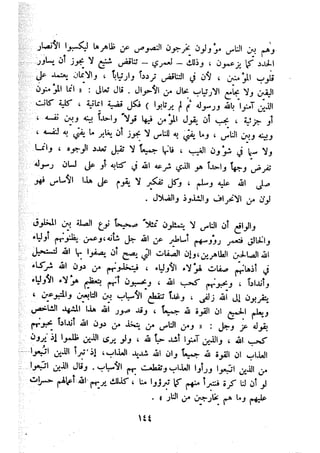 وهم بين الناس مؤولون يخرجون النصوص عن ظاهرها ليكسبوا الأنصار
الجدد كما يزعمون ، وذلك - لعمري - تناقض شنيع لا يجوز أن يساور
قلوب المؤمنين ، لأن في التناقض تردداً وارتياباً ، والايمان يعتمد على
اليقين ولا يجامع الارتياب بحال من الأحوال . قال تعالى : « انما المؤمنون
الذين آمنوا بالله ورسوله ثم لم يرتابوا ) فكل قضية ايمانية ، كلية كانت
أو جزئية ، يجب أن يقول المؤمن فيها قولاً واحداً بينه وبين نفسه ،
وبينه وبين الناس ، وما يفتي به للناس لا يجوز أن يغاير ما يفتي به لنفسه ،
ولا سيما في شؤون الغيب ، فانها جميعاً لا تقبل تعدد الوجوه ، وانما
تفرض وجهاً واحداً هو الذي شرعه الله في كتابه أو على لسان رسوله
صلى الله عليه وسلم ، وكل تفكير لا يقوم على هذا الأساس فهو
لون من الانحراف والشذوذ والضلال .
والواقع أن الناس لا يتمثلون تمثلاً صحيحاً نوع الصلة بين المخلوق
والخالق فتعمر رؤوسهم أساطير عن الله جل شأنه، وعمن يظنونهم أولياء
الله الصالحين الطاهرين، وإن الصفات التي يصح أن يصفوا بها الله لتستحيل
في أذهانهم صفات هؤلاء الأولياء ، فيتخذونهم من دون الله شركاء
وأنداداً ، ويحبونهم كحب الله ، ويحسبون أنهم بتعظيم هؤلاء الأولياء
يتقربون إلى الله زلفى ، وغداً تتقطع الأسباب بين التابعين والمتبوعين ،
ويعلم الجميع ان القوة لله جميعاً ، وقد صور الله هذا المشهد الشاخص
بقوله عز وجل : « ومن الناس من يتخذ من دون الله أنداداً يحبونهم
كحب الله ، والذين آمنوا أشد حباً لله ، ولو يرى الذين ظلموا إذ يرون
العذاب ان القوة لله جميعاً وان الله شديد العذاب، إذ تبرأ الذين اتبعوا
من الذين اتبعوا ورأوا العذاب وتقطعت بهم الأسباب . وقال الذين اتبعوا
لو أن لنا كرة فنتبرأ منهم كما تبرؤوا منا ، كذلك يريهم الله أعمالهم حسرات
عليهم وما هم بخارجين من النار » .
١٤٤